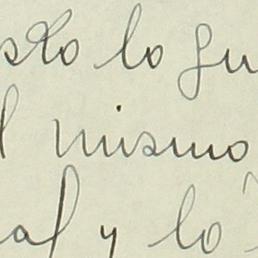 sto lo gu
l mismo
al y lo